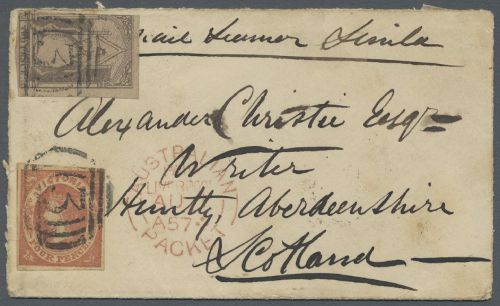 Mail Steamer Simla
Alexander Christie Esqr
Writer
Huntly, Aberdeenshire
Scotland
AUSTRALIAN
LIVERPOOL
AU
A57
PACKET
VICTORIA
FOUR PENCE